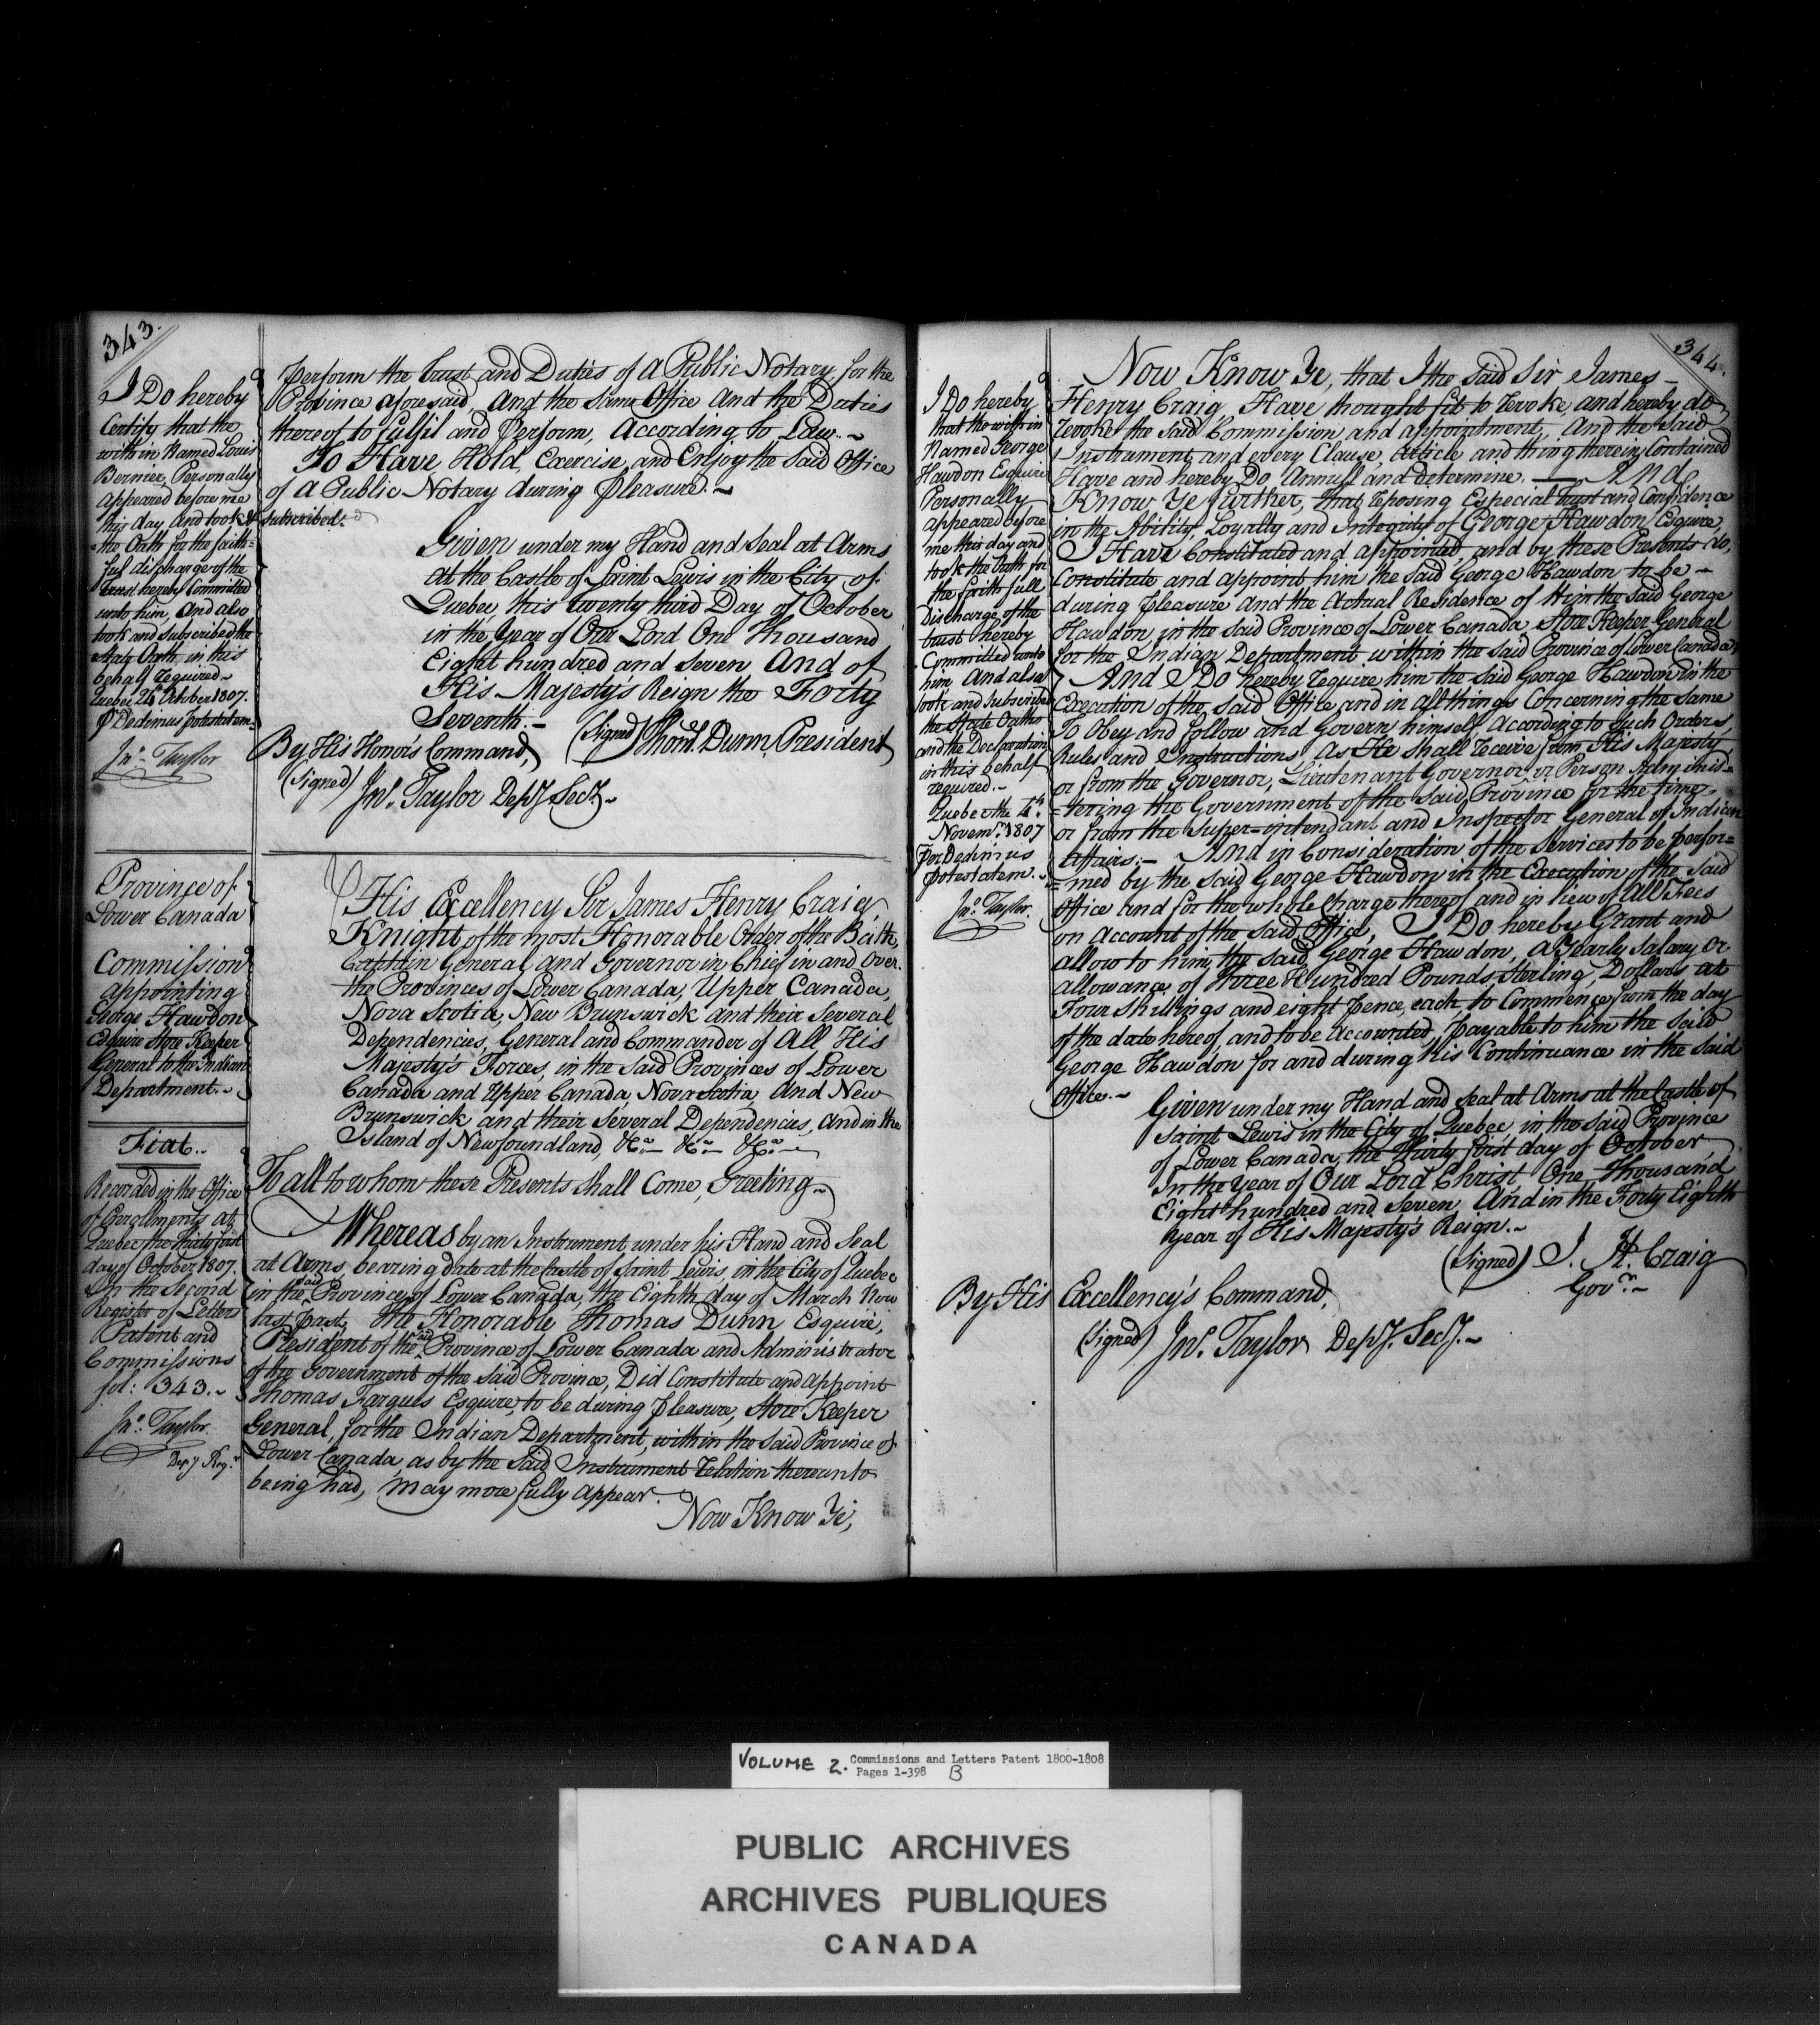 343.
I Do hereby
Certify that the
within Named Louis
Bernier, Personally
appeared before me
this day and took &
subscribed
the Oath for the faith=
ful discharge of the
Trust hereby Committed
unto him, And also
took and subscribed the
State Oath, in this
behalf required.
Quebec 24th October 1807.
P Dedimus potestatem
Jno. Taylor
Perform the trust and Duties of a Public Notary for the
Province aforesaid, and the same Office and the Duties
thereof to fulfil and Perform, According to Law.~
To Have, Hold, Exercise and Enjoy the said Office
of a Public Notary during Pleasure.~
Given under my Hand and Seal at Arms
at the Castle of Saint Lewis in the City of
Quebec, this twenty third Day of October
in the Year of Our Lord One Thousand
Eight hundred and seven And of
His Majesty's Reign the Forty
Seventh.-
(Signed) Thos. Dunn, President
By His Honor's Command,
(Signed) Jno. Taylor Depy. Secy.~
Province of
Lower Canada
Commission
appointing
George Hawdon
Esquire Store Keeper
General to the Indian
Department.~
Fiat..
Recorded in the Office
of Enrollments at
Quebec the thirty first
day of October 1807.
In the Second
Register of Letters
Patent and
Commissions
fol: 343.~
Jno. Taylor
Depy Regr.
His Excellency Sir James Henry Craig,
Knight of the most Honorable Order of the Bath,
Captain General and Governor in Chief in and Over
the Provinces of Lower Canada, Upper Canada,
Nova Scotia, New Brunswick and their Several
Dependencies, General and Commander of All His
Majesty's Forces, in the said Provinces of Lower
Canada and Upper Canada, Nova Scotia, And New
Brunswick and their Several Dependencies, and in the
Island of Newfoundland, &ca. &ca. &ca.
To all to whom these Presents shall Come, Greeting~
Whereas by an Instrument under his Hand and Seal
at Arms, bearing date at the Castle of Saint Lewis, in the City of Quebec
in the said Province of Lower Canada, the Eighth day of March Now
last past, The Honorable Thomas Dunn Esquire,
President of the said Province of Lower Canada and Administrator
of the Government of the said Province, Did Constitute and appoint
Thomas Fargues Esquire, to be during Pleasure, Store Keeper
General, for the Indian Department, within the said Province of
Lower Canada, as by the said Instrument relation thereunto
being had, may more fully appear.
Now Know Ye,
344.
I Do hereby
that the within
Named George
Hawdon Esquire
Personally
appeared before
me this day and
took the Oath for
the faith full
Discharge of the
trust hereby
Committed unto
him And also
took and subscribed
the State Oaths
and the Declaration
in this behalf
required.~
Quebec the 4th
Novemr. 1807
Per Dedimus
potestatem.~
Jno. Taylor.
Now Know Ye, that I the said Sir James
Henry Craig, Have thought fit to revoke, and hereby do
revoke the said Commission and appointment, And the said
Instrument, and every Clause, Article and thing therein Contained
Have and hereby Do, Annull and determine. — And
Know Ye further, that reposing Especial trust and Confidence
in the Ability, Loyalty and Integrity of George Hawdon Esquire,
I Have Constituted and appointed, and by these Presents do,
Constitute and appoint him the said George Hawdon to be
during Pleasure and the Actual Residence of Him the said George
Hawdon, in the said Province of Lower Canada, Store Keeper General
for the Indian Department within the said Province of Lower Canada,
And I Do hereby require him the said George Hawdon in the
Execution of the said Office and in all things Concerning the same
To Obey and follow and Govern himself, According to such Orders,
Rules and Instructions, As He shall receive from His Majesty
or from the Governor, Lieutenant Governor, or Person Adminis=
=tering the Government of the said Province for the time,
or from the Super=intendant and Inspector General of Indian
Affairs:- And in Consideration of the Services to be perfor=
=med by the said George Hawdon in the Execution of the said
Office and for the whole Charge thereof and in lieu of All Fees
on Account of the said Office, I Do hereby Grant and
allow to him, the said George Hawdon, a Yearly Salary or
allowance of three Hundred Pounds Sterling, Dollars at
Four Shillings and eight pence, each to Commence from the day
of the date hereof, and to be accounted payable to him the said
George Hawdon for and during his Continuance in the said
Office.~
Given under my Hand and Seal at Arms at the Castle of
Saint Lewis in the City of Quebec, in the said Province
of Lower Canada, the thirty first day of October,
In the Year of Our Lord Christ, One Thousand
Eight hundred and seven, And in the Forty Eighth
Year of His Majesty's Reign.~
(Signed) J. H. Craig
Govr.~
By His Excellency's Command,
(Signed) Jno. Taylor Depy. Secy.~
VOLUME 2. Commissions and Letters Patent 1800-1808
Pages 1-398 B
PUBLIC ARCHIVES
ARCHIVES PUBLIQUES
CANADA